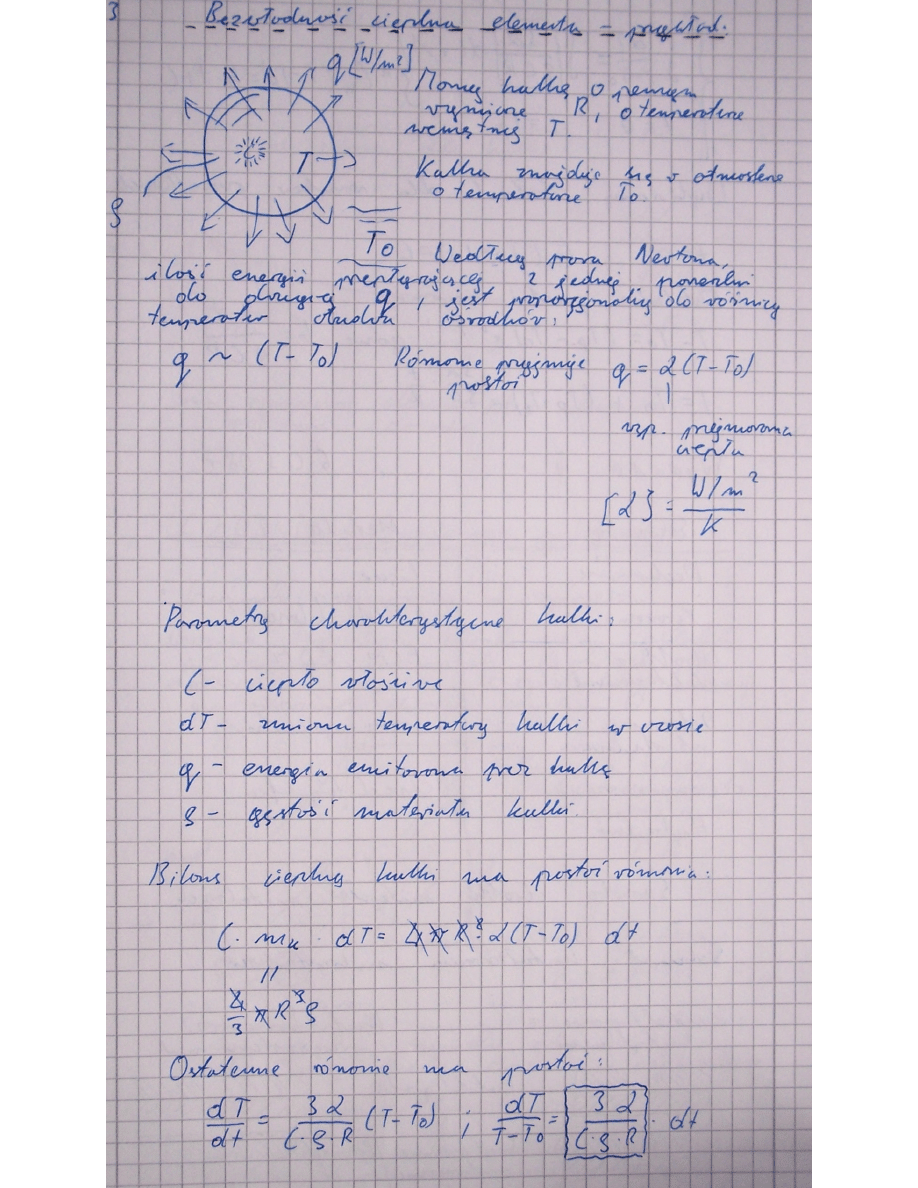 3
- Bezwładność cieplna elementu - przykład.
q [W/m²]
Mamy kulkę o pewnym
wymiarze R, o temperaturze
wewnątrz T.
T
Kulka znajduje się w atmosferze
o temperaturze T₀.
ρ
T₀
Według prawa Newtona,
ilość energii przepływającej z jednej powierzchni
do drugiej q, jest proporcjonalna do różnicy
temperatur obudwu ośrodków:
q ~ (T-T₀) Równanie przyjmuje postać q = α(T-T₀)
wsp. przejmowania
ciepła
[α] = W/m² / K
Parametry charakterystyczne kulki:
C - ciepło właściwe
dT - zmiana temperatury kulki w czasie
q - energia emitowana przez kulkę
ρ - gęstość materiału kulki
Bilans cieplny kulki ma postać równania:
C · mₖ · dT = 4πR² · α(T-T₀) dt
||
4/3 πR³ρ
Ostateczne równanie ma postać:
dT/dt = 3α/(C·ρ·R) (T-T₀) ; dT/(T-T₀) = 3α/(C·ρ·R) · dt